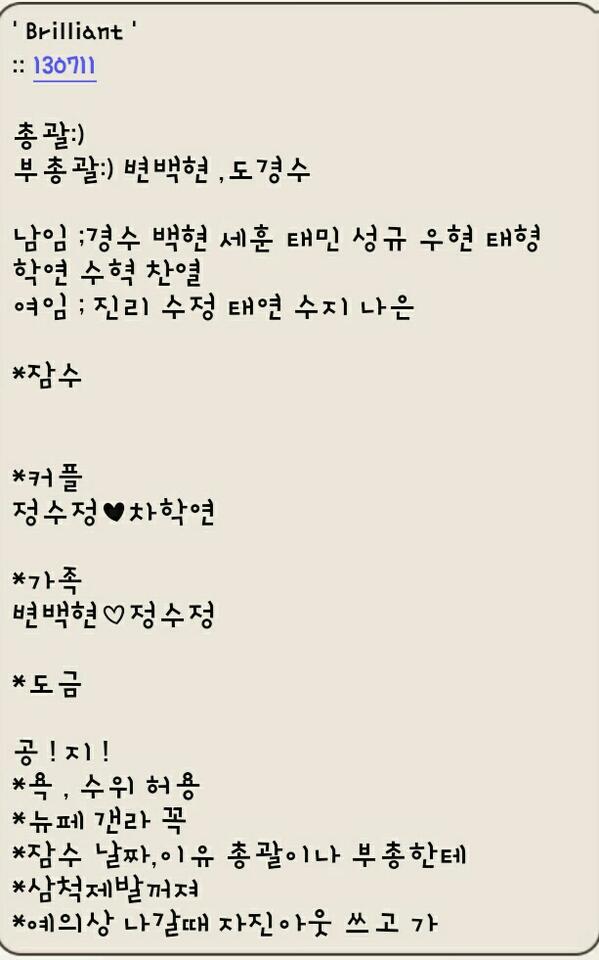 ' Brilliant '
:: 130711
총괄:)
부총괄:) 변백현 ,도경수
남임 ;경수 백현 세훈 태민 성규 우현 태형
학연 수혁 찬열
여임 ; 진리 수정 태연 수지 나은
*잠수
*커플
정수정♥차학연
*가족
변백현♡정수정
*도금
공 ! 지 !
*욕 , 수위 허용
*뉴페 갠라 꼭
*잠수 날짜,이유 총괄이나 부총한테
*삼척제발꺼져
*예의상 나갈때 자진아웃 쓰고 가